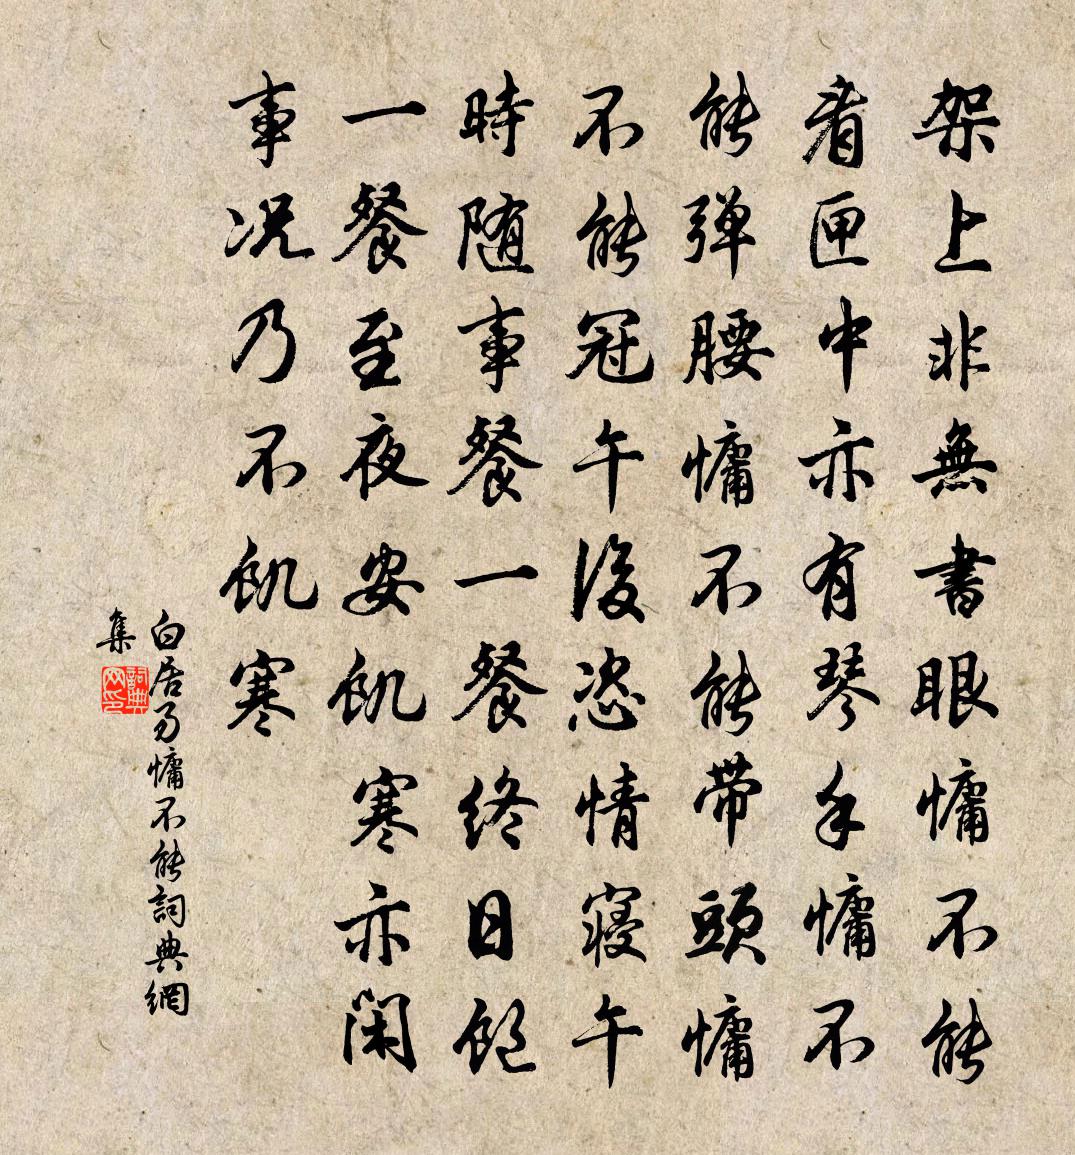 架上非無書眼慵不能
看匣中亦有琴手慵不
能弹腰慵不能带頭慵
不能冠午後恣情寝午
時随事餐一餐终日飽
一餐至夜安飢寒亦闲
事况乃不飢寒
白居易慵不能詞典網
集
詞典网印